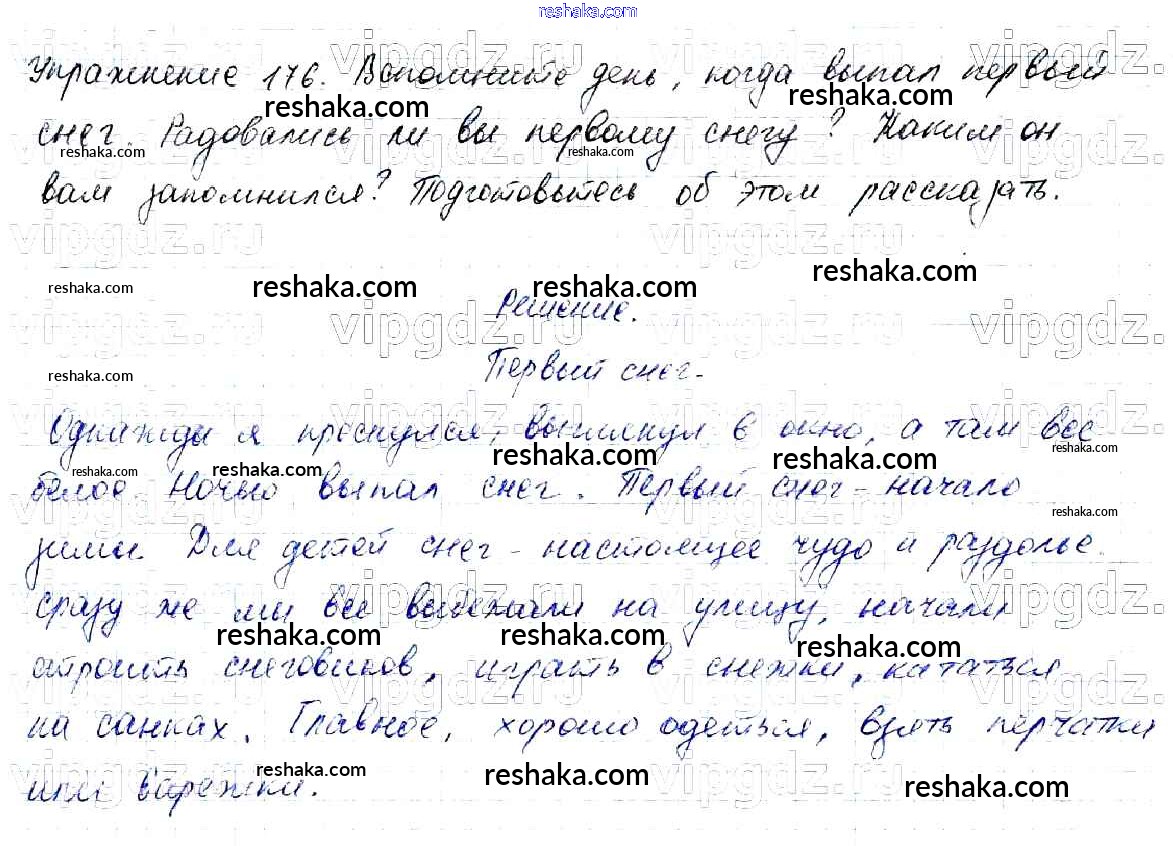 reshaka.com
Упражнение 176. Вспомните день, когда выпал первый
reshaka.com reshaka.com
снег. Радовались ли вы первому снегу? Каким он
reshaka.com reshaka.com
вам запомнился? Подготовьтесь об этом рассказать.
vipgdz.ru vipgdz.ru vipgdz.
reshaka.com reshaka.com reshaka.com reshaka.com
Решение.
vipgdz.ru vipgdz.ru vipgdz.
Первый снег.
reshaka.com
Однажды я проснулся, выглянул в окно, а там все
reshaka.com reshaka.com reshaka.com reshaka.com reshaka.com
белое. Ночью выпал снег. Первый снег - начало
reshaka.com
зимы. Для детей снег - настоящее чудо и раздолье.
сразу же мы все выбежали на улицу, начали
reshaka.com reshaka.com reshaka.com
строить снеговиков, играть в снежки, кататься
на санках. Главное, хорошо одеться, взять перчатки
reshaka.com reshaka.com reshaka.com
или варежки.